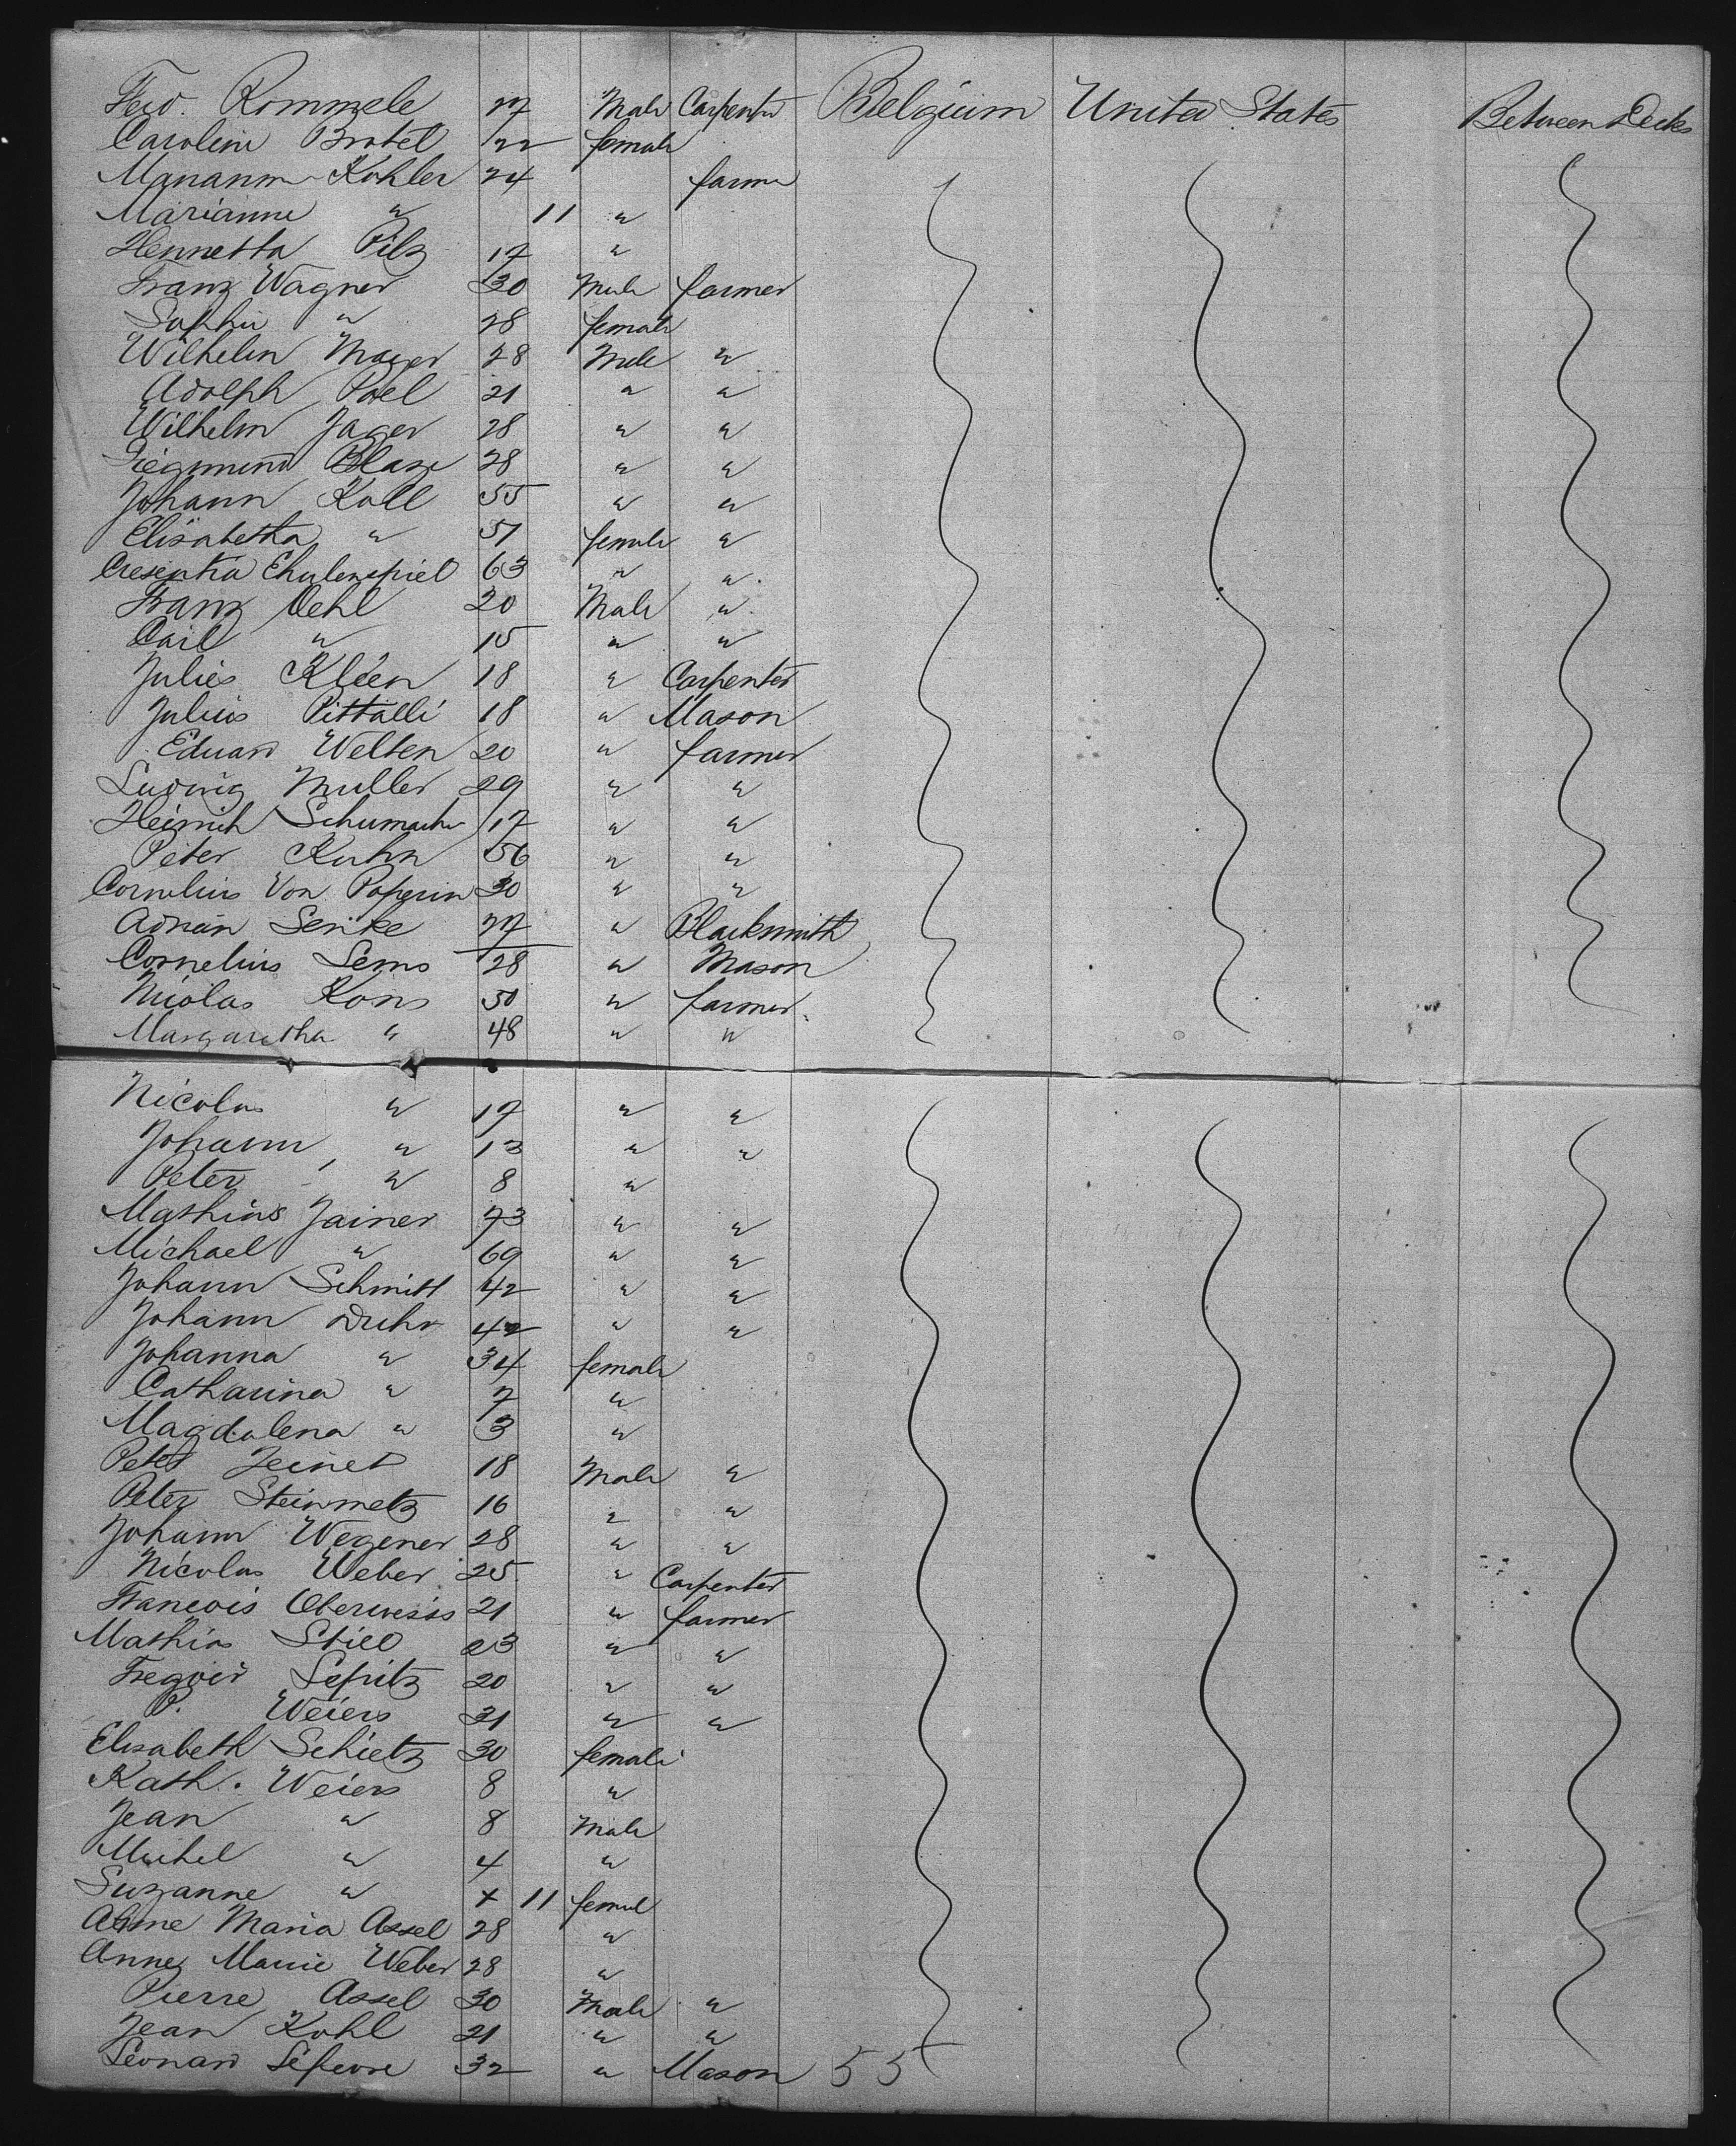 Ferd. Rommele 27 Male Carpenter Belgium United States Between Decks
Caroline Brobel 22 female
Mariann Kohler 24 farmer
Marianne " 11 "
Hennetta Pilz 17 "
Franz Wagner 30 Male farmer
Sophie " 28 female
Wilhelm Mayer 28 Male "
Adolph Poel 21 " "
Wilhelm Jager 28 " "
Siegmund Blaze 28 " "
Johann Koll 55 " "
Elisabetha " 51 female "
Cresentia Ehulenspiel 63 " "
Franz Oehl 20 Male "
Carl " 15 " "
Julies Kleen 18 " Carpenter
Julius Pittalli 18 " Mason
Eduard Welten 20 " farmer
Ludwig Muller 29 " "
Heinrich Schumacher 17 " "
Peter Kuhn 56 " "
Cornelius Von Poperin 30 " "
Adrian Serike 27 " Blacksmith
Cornelius Lems 28 " Mason
Nicolas Kons 50 " farmer
Margaretha " 48 " "
Nicolas " 17 " "
Johann " 13 " "
Peter " 8 "
Mathias Jainer 73 " "
Michael " 69 " "
Johann Schmitt 42 " "
Johann Duhr 42 " "
Johanna " 34 female
Catharina " 7 "
Magdalena " 3 "
Peter Jeiner 18 Male "
Peter Steinmetz 16 " "
Johann Wegener 28 " "
Nicolas Weber 25 " Carpenter
Francois Oberweiss 21 " farmer
Mathias Still 23 " "
Lefritz 20 " "
P. Weiers 31 " "
Elisabeth Schietz 30 female
Kath. Weiers 8 "
Jean " 8 Male
Michel " 4 "
Suzanne " + 11 femal
Anne Maria Assel 28 "
Anne Marie Weber 28 "
Pierre Assel 30 Male "
Jean Kohl 21 " "
Leonard Lefevre 32 " Mason 55